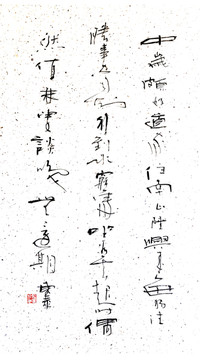 中歲頗好道晚家南山陲興來每獨往
勝事空自知行到水窮處坐看雲起時偶
然值林叟談笑無還期